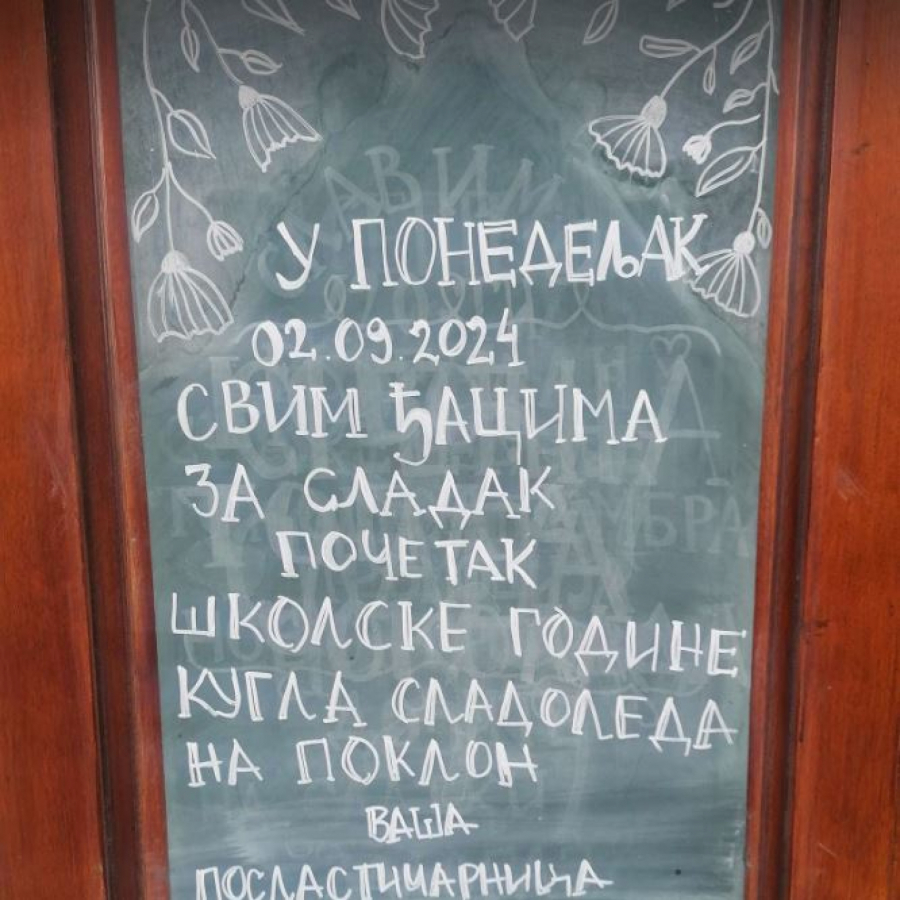 У ПОНЕДЕЉАК
02.09.2024
СВИМ ЂАЦИМА
ЗА СЛАДАК
ПОЧЕТАК
ШКОЛСКЕ ГОДИНЕ
КУГЛА СЛАДОЛЕДА
НА ПОКЛОН
ВАША
ПОСЛАСТИЧАРНИЦА